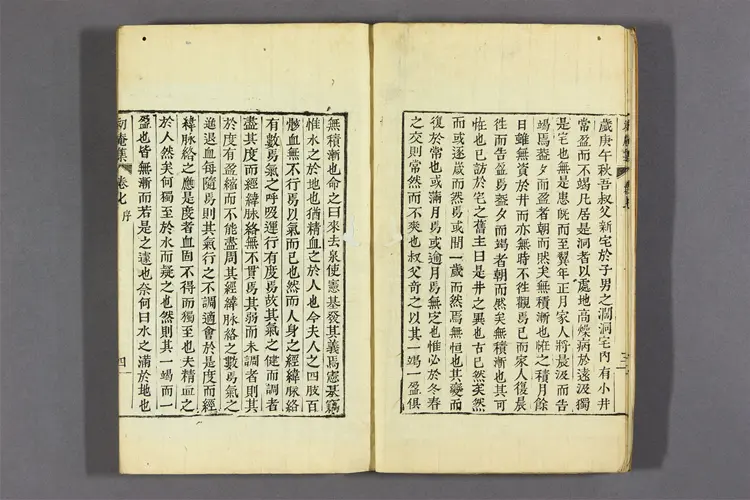 歲庚午秋吾叔父新宅於子男之澗洞宅內有小井
常盈而不竭凡居是洞者以處地高燥病於遠汲獨
是宅也無是患旣而至翌年正月家人將晨汲而告
竭焉登夕而盈者朝而然矣無積漸也旺之積月餘
日雖無資於井而亦無時不徃觀焉已而家人復晨
徃而告盈焉登夕而竭者朝而然矣無積漸也其可
恠也已訪於宅之舊主曰是井之異也古已然矣然
而或逐歲而然焉或間一歲而然焉無恒也其變而
復於常也或滿月焉或逾月焉無定也惟必於冬春
之交則常然而不爽也叔父奇之以其一竭一盈俱
無積漸也命之曰來去泉使憲基發其義焉憲基竊
惟水之於地也猶精血之於人也今夫人之四肢百
骸血無不行焉以氣而已也然而人身之經緯脉絡
有數焉氣之呼吸運行有度焉故其氣之健而調者
盡其度而經緯脉絡無不貫焉其弱而未調者則其
於度有盈縮而不能盡周其經緯脉絡之數焉氣之
進退血每隨焉則其氣行之不調適會於是度而經
緯脉絡之應是度者血固不得而獨至也夫精血之
於人然矣何獨至於水而疑之也然則其一竭而一
盈也皆無漸而若是之遽也奈何曰水之滿於地也
初庵集 卷七 序 四